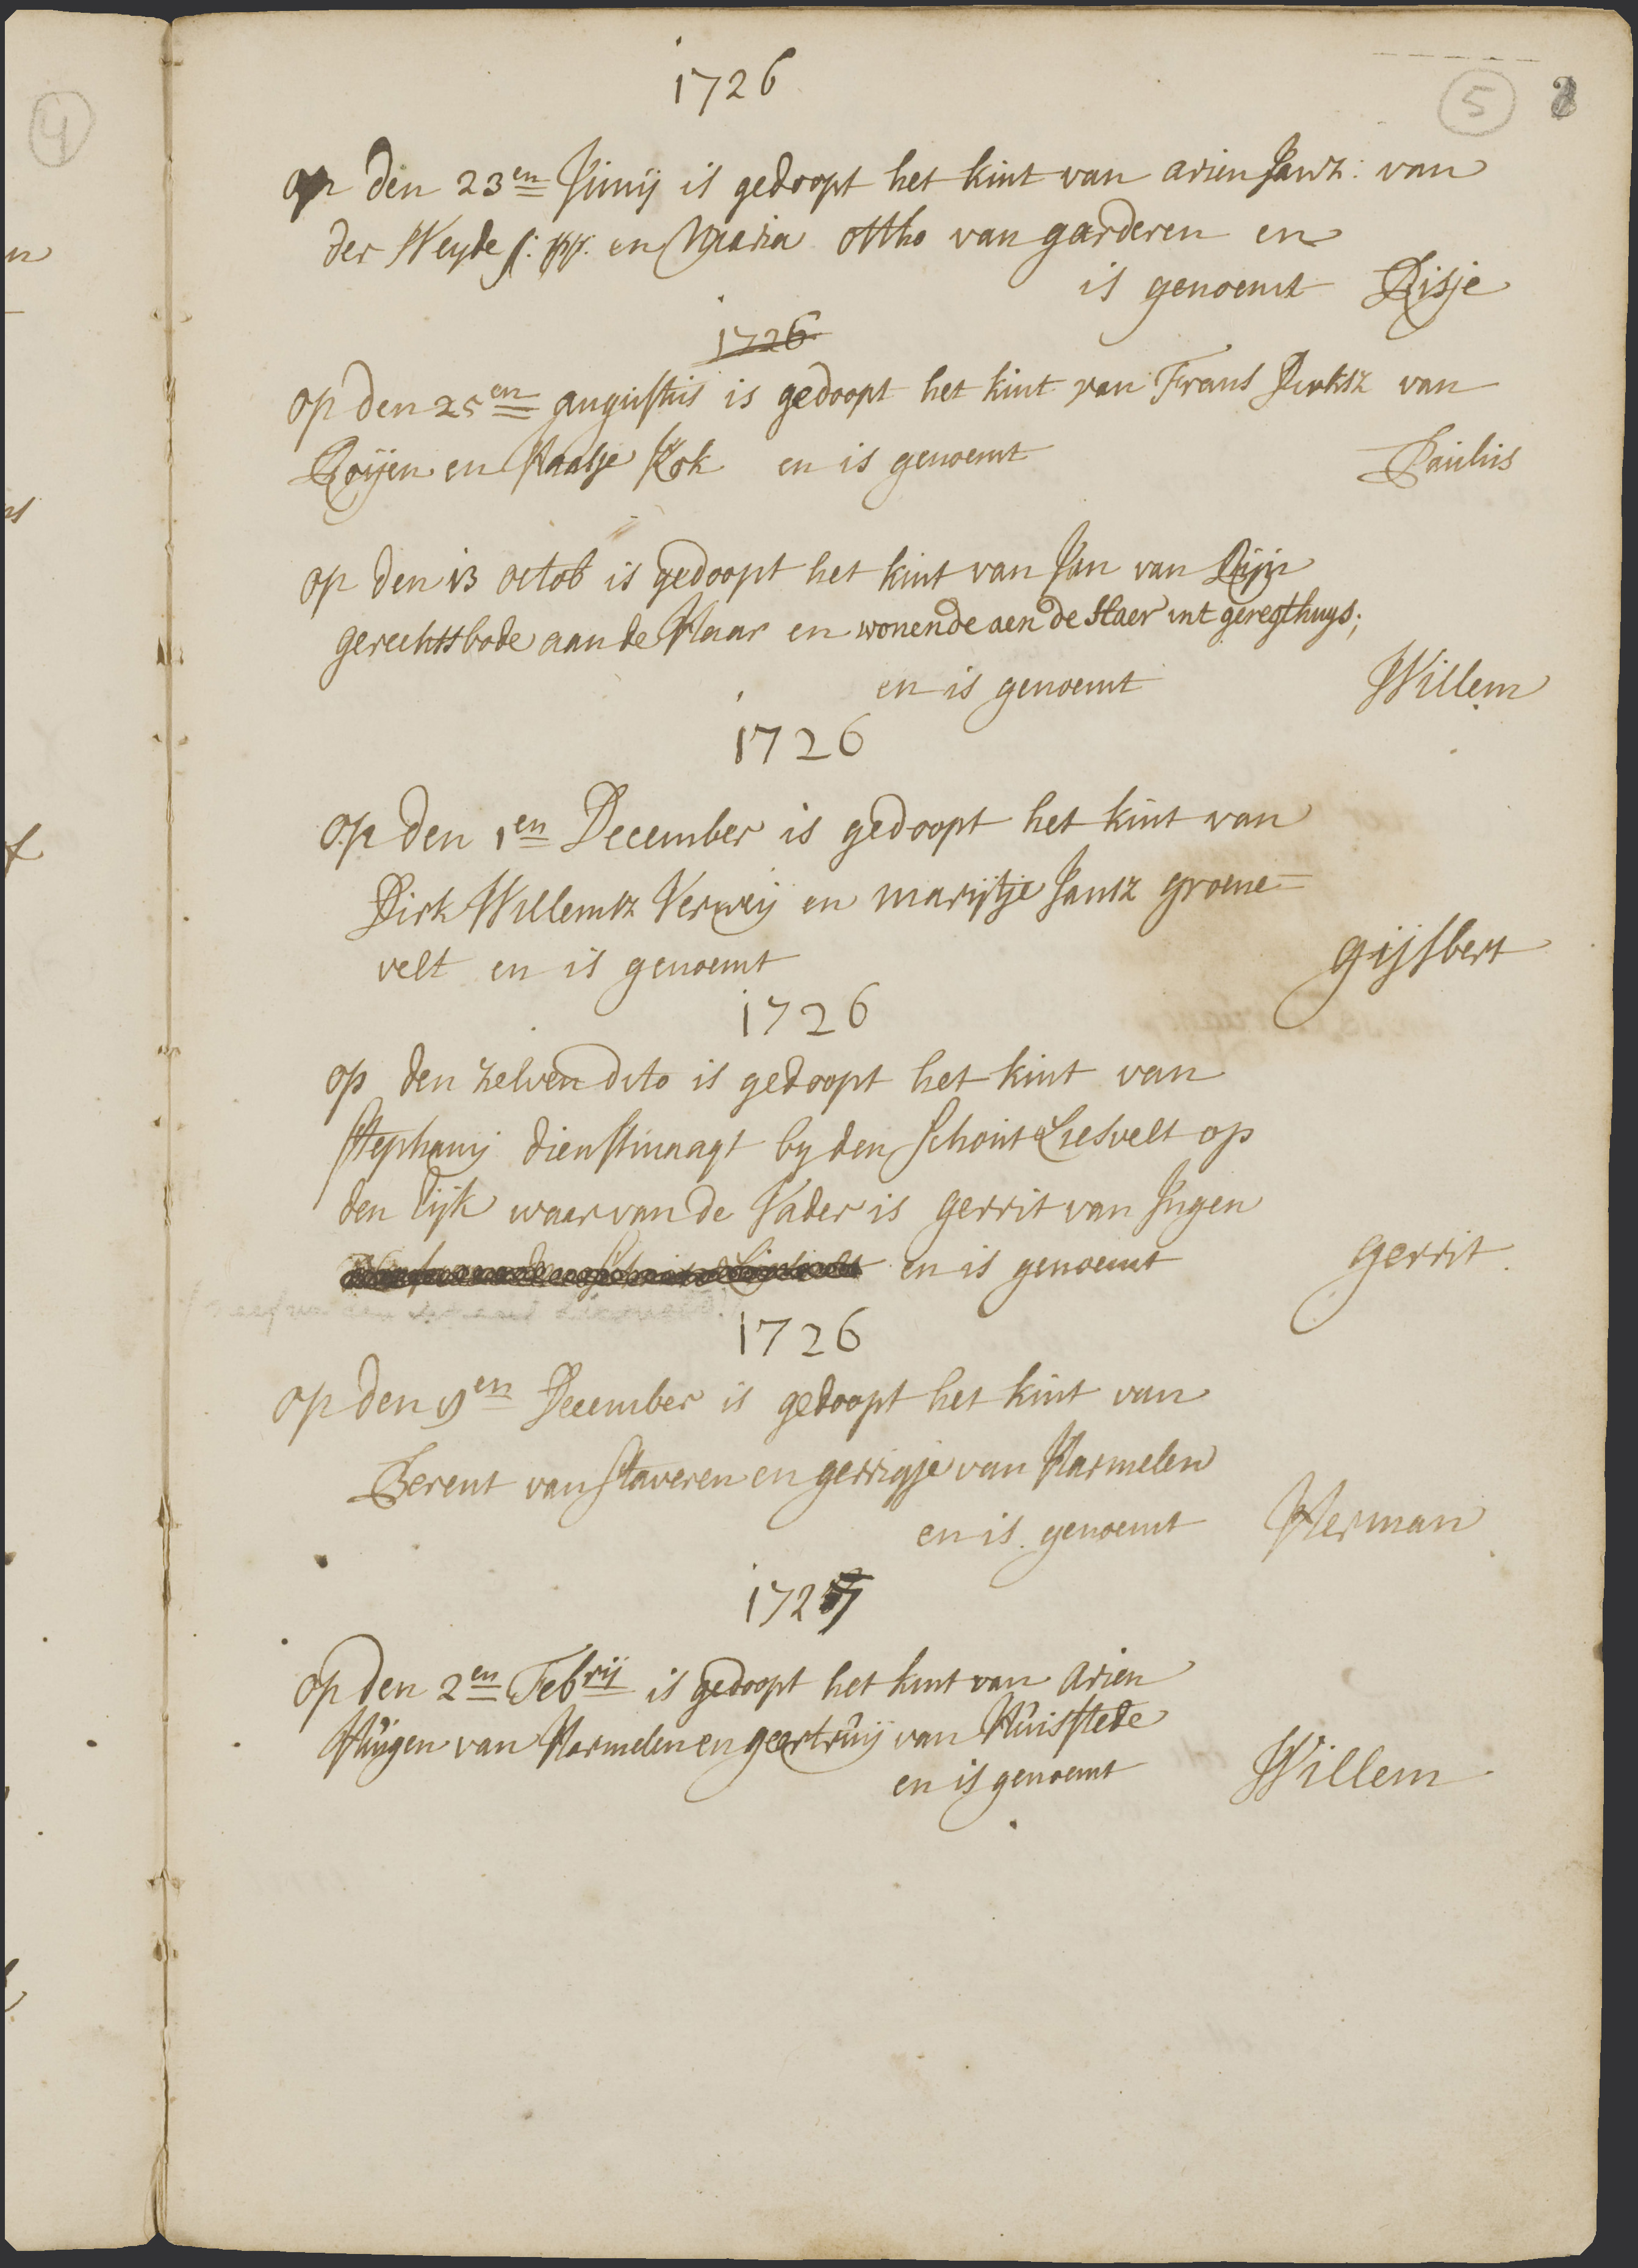 1726
5
4
op den 23en Junij is gedoopt het kint van arien Jansz: van
der Weyde en Maria ottho van garderen en
is genoemt Disje
1726
op den 25en augustus is gedoopt het kint van Frans Dirksz van
Roijen en Kaatje Kok en is genoemt Paulus
op den 13 octob is gedoopt het kint van Jan van Rijn
gerechtsbode aan de Haar en wonende aen de Haer int geregthuys;
en is genoemt Willem
1726
op den 1en December is gedoopt het kint van
Dirk Willemsz Verweij en marijtje Jansz groene=
velt en is genoemt gijsbert
1726
op den zelven dito is gedoopt het kint van
Stephanij dienstmaagt by den Schout Liesvelt op
den dijk waar van de Vader is gerrit van Ingen
en is genoemt gerrit
1726
op den 19en December is gedoopt het kint van
Berent van Staveren en gerrigje van Harmelen
en is genoemt Herman
1727
op den 2en Febrij is gedoopt het kint van arien
Huijgen van Harmelen en geertruij van Huisstede
en is genoemt Willem